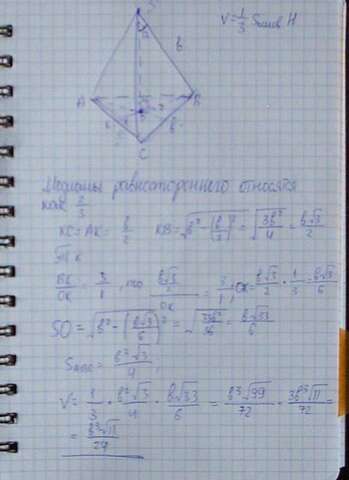 S
V=1/3 Sоснов H
b
A
B
b
C
Медианы равностороннего относятся
как 2/3
KC=AK=b/2 KB=√(b²-(b/2)²)=√(3b²/4)=b√3/2
BK/OK=3/1, то (b√3/2)/OK=3/1; OK=b√3/2·1/3=b√3/6
SO=√(b²-(b√3/6)²)=√(33b²/36)=b√33/6
Sоснов=b²√3/4
V=1/3·b²√3/4·b√33/6=b³√99/72=3b³√11/72=
=b³√11/24